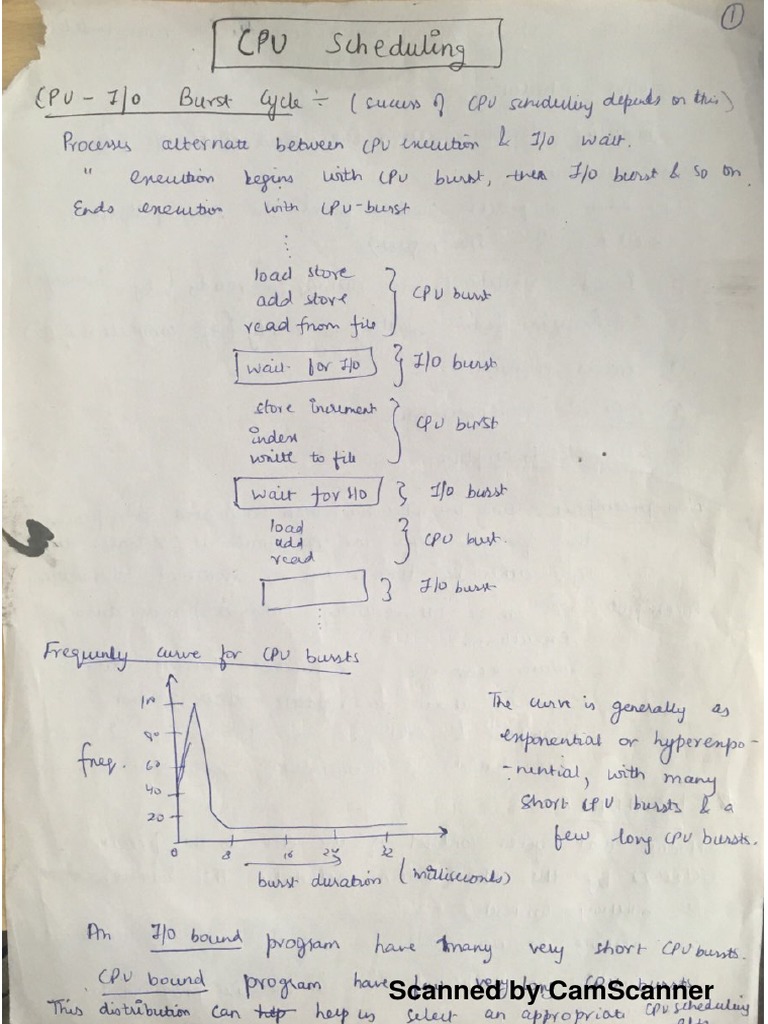 1
CPU Scheduling
CPU - I/O Burst Cycle ÷ (success of CPU scheduling depends on this)
Processes alternate between CPU execution & I/O wait.
" execution begins with CPU burst, then I/O burst & so on
Ends execution with CPU-burst
load store
add store
read from file
CPU burst
wait for I/O
I/O burst
store increment
index
write to file
CPU burst
wait for I/O
I/O burst
load
add
read
CPU bust.
I/O burst
Frequenly curve for CPU bursts
freq.
100
80
60
40
20
0 8 16 24 32
burst duration (milliseconds)
The curve is generally as
exponential or hyperexpo-
-nential, with many
short CPU bursts & a
few long CPU bursts.
An I/O bound program have many very short CPU bursts.
CPU bound program have few very long CPU bursts
This distribution can help us select an appropriate CPU scheduling
Scanned by CamScanner